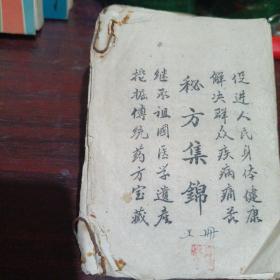 促进人民身体健康
解决群众疾病痛苦
秘方集锦
上册
继承祖国医学遗产
挖掘传统药方宝藏